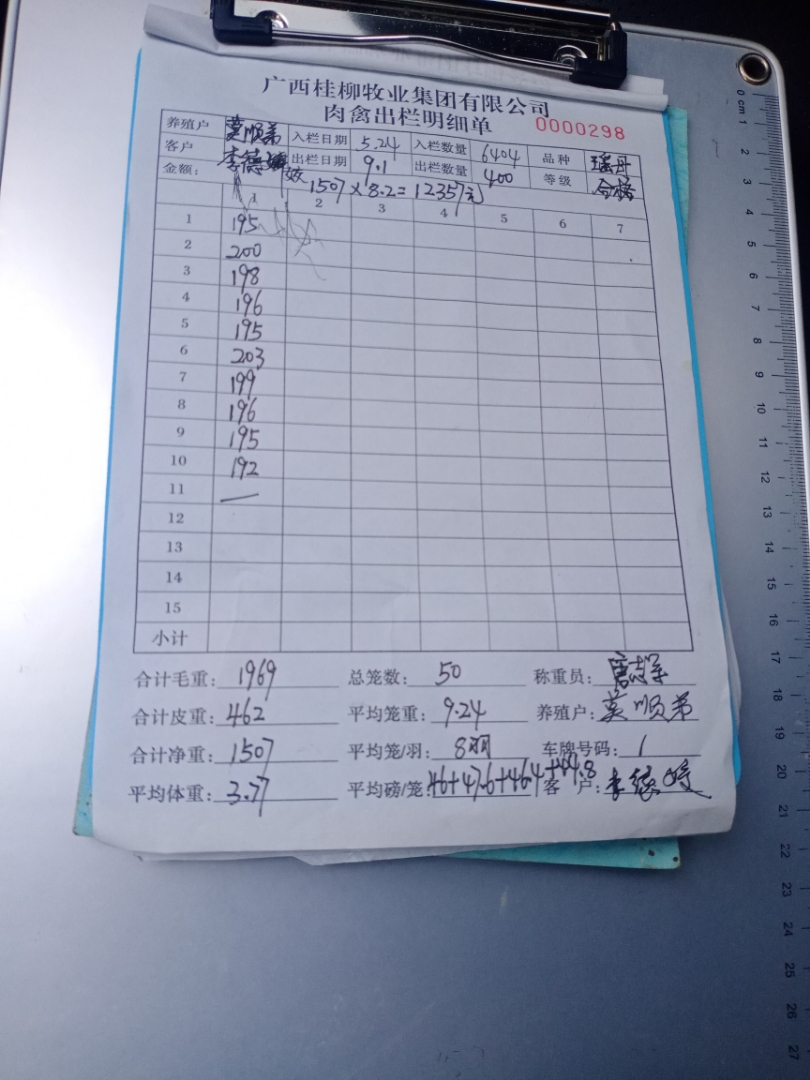 广西桂柳牧业集团有限公司
肉禽出栏明细单 0000298
养殖户 莫顺弟 入栏日期 5.24 入栏数量 6404 品种 瑶丹
客户 李德 出栏日期 9.1 出栏数量 400 等级 合格
金额: 1507×8.2=12357元
1 2 3 4 5 6 7
1 195
2 200
3 198
4 196
5 195
6 203
7 199
8 196
9 195
10 192
11 —
12
13
14
15
小计
合计毛重: 1969 总笼数: 50 称重员:
合计皮重: 462 平均笼重: 9.24 养殖户: 莫顺弟
合计净重: 1507 平均笼/羽: 8羽 车牌号码: 1
平均体重: 3.77 平均磅/笼: 46+47.6+46.4+44.8 客 户: 李德
0 cm 1 2 3 4 5 6 7 8 9 10 11 12 13 14 15 16 17 18 19 20 21 22 23 24 25 26 27